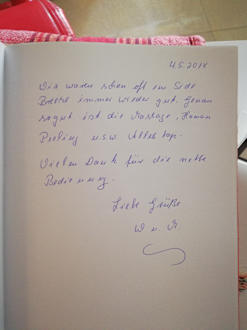 4.5.2018
Wir waren schon oft in Side
immer wieder gut. Genau
so gut ist die Massage, Hamam
Peeling u.s.w. Alles top.
Vielen Dank für die nette
Bedienung.
Liebe Grüße
W u.